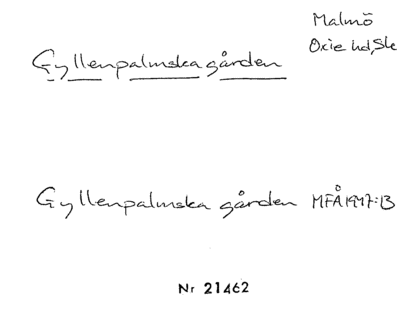 Malmö
Oxie hd, Sk
Gyllenpalmska gården
Gyllenpalmska gården MFÅ 1947:13
Nr 21462